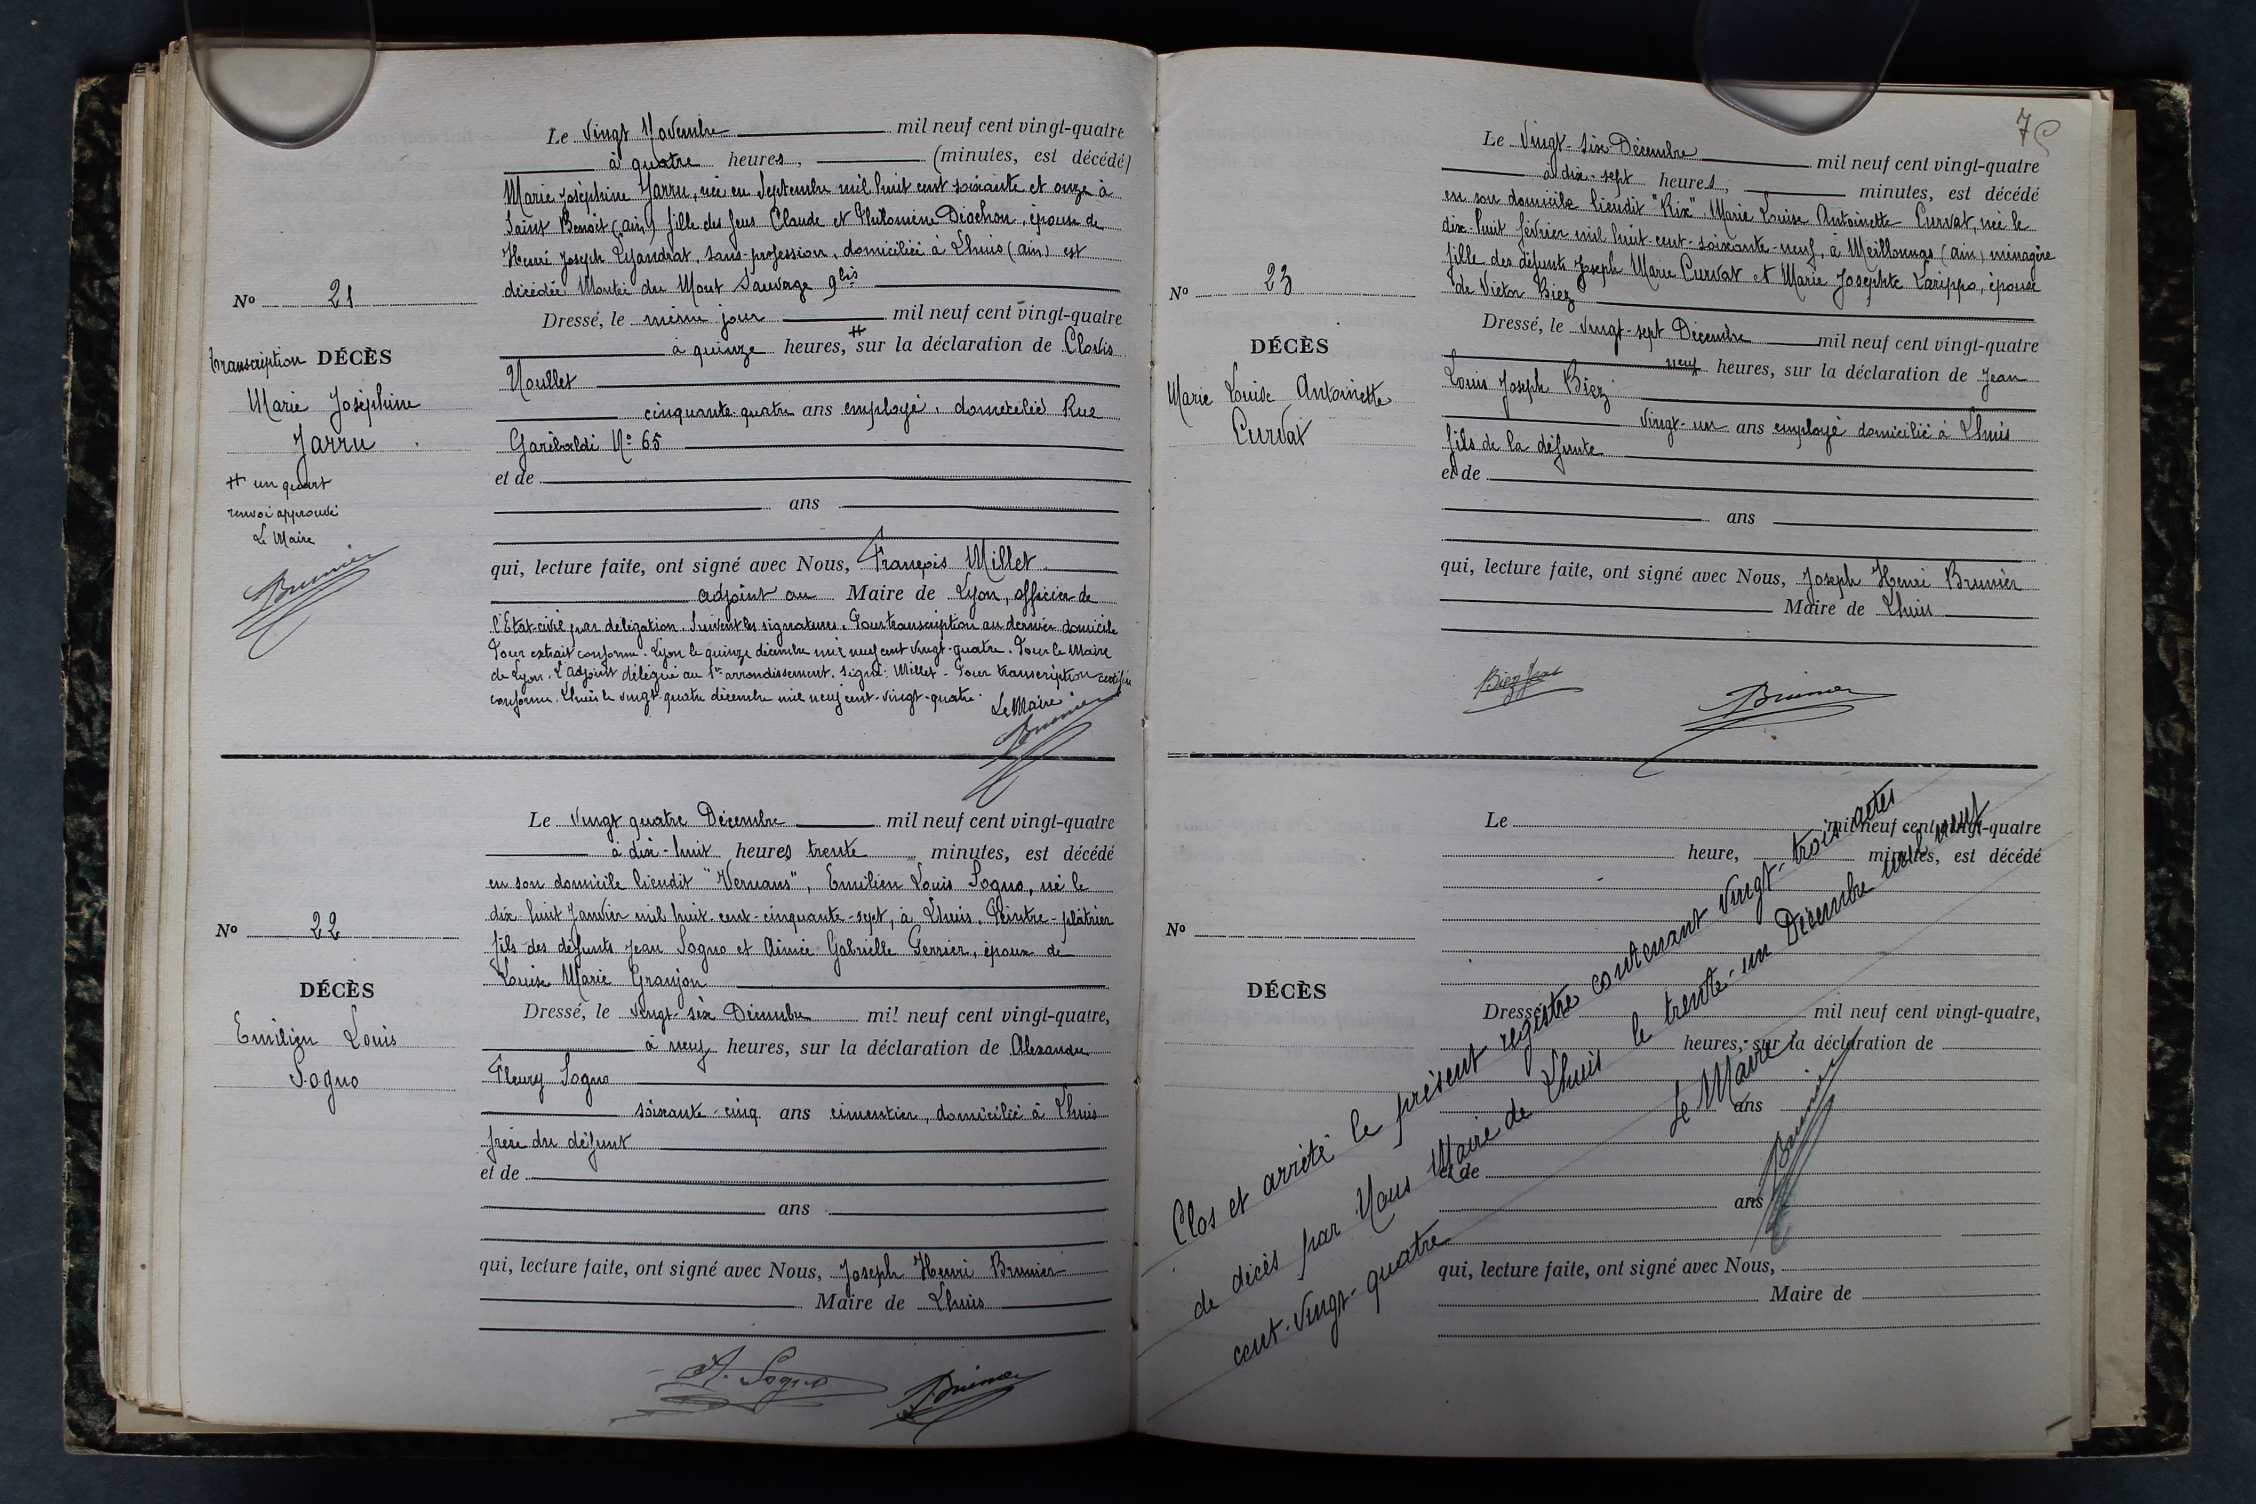 Le vingt Novembre mil neuf cent vingt-quatre
à quatre heures, (minutes, est décédé)
Marie Joséphine Jarru, née en Septembre mil huit cent soixante et onze à
Saint Benoit (ain) fille des feus Claude et Philomène Diochon, épouse de
Henri Joseph Lyandrat, sans profession, domiciliée à Lhuis (ain) est
décédée Montée du Mont Sauvage 9bis
Nº 21
Dressé, le même jour mil neuf cent vingt-quatre
à quinze heures, # sur la déclaration de Clovis
transcription DÉCÈS
Noullet
Marie Joséphine
Jarru
cinquante quatre ans employé, domicilié Rue
Garibaldi Nº 65
# un quart
renvoi approuvé
Le Maire
Brunier
et de
ans
qui, lecture faite, ont signé avec Nous, François Millet
adjoint au Maire de Lyon, officier de
l'Etat-civil par délégation. Suivent les signatures. Pour transcription au dernier domicile
Pour extrait conforme. Lyon le quinze décembre mil neuf cent vingt-quatre. Pour le Maire
de Lyon. L'adjoint délégué au 1er arrondissement. signé: Millet - Pour transcription certifiée
conforme. Lhuis le vingt-quatre décembre mil neuf cent-vingt-quatre.
Le Maire
Brunier
Le vingt quatre Décembre mil neuf cent vingt-quatre
à dix-huit heures trente minutes, est décédé
en son domicile lieudit "Vernans", Emilien Louis Sogno, né le
dix-huit Janvier mil huit-cent-cinquante-sept, à Lhuis. Peintre-plâtrier
fils des défunts Jean Sogno et Aimée Gabrielle Perrier, époux de
Louise Marie Granjon
Nº 22
DÉCÈS
Emilien Louis
Sogno
Dressé, le vingt-six Décembre mil neuf cent vingt-quatre,
à neuf heures, sur la déclaration de Alexandre
Fleury Sogno
soixante-cinq ans cimentier, domicilié à Lhuis
frère du défunt
et de
ans
qui, lecture faite, ont signé avec Nous, Joseph Henri Brunier
Maire de Lhuis
A. Sogno
Brunier
Le Vingt-six Décembre mil neuf cent vingt-quatre
à dix-sept heures, minutes, est décédé
en son domicile lieudit "Rix" Marie Louise Antoinette Curvat, née le
dix-huit février mil huit-cent-soixante-neuf, à Meillonnas (ain) ménagère
fille des défunts Joseph Marie Curvat et Marie Josephte Larippo, épouse
de Victor Biez
Nº 23
DÉCÈS
Marie Louise Antoinette
Curvat
Dressé, le vingt-sept Décembre mil neuf cent vingt-quatre
neuf heures, sur la déclaration de Jean
Louis Joseph Biez
vingt-un ans employé domicilié à Lhuis
fils de la défunte
et de
ans
qui, lecture faite, ont signé avec Nous, Joseph Henri Brunier
Maire de Lhuis
Biez Jean
Brunier
Le mil neuf cent vingt-quatre
heure, minutes, est décédé
Nº
DÉCÈS
Dressé, le mil neuf cent vingt-quatre,
heures, sur la déclaration de
ans
et de
ans
qui, lecture faite, ont signé avec Nous,
Maire de
Clos et arrêté le présent registre contenant vingt-trois actes
de décès par Nous Maire de Lhuis le trente-un Décembre mil neuf
cent-vingt-quatre
Le Maire
Brunier